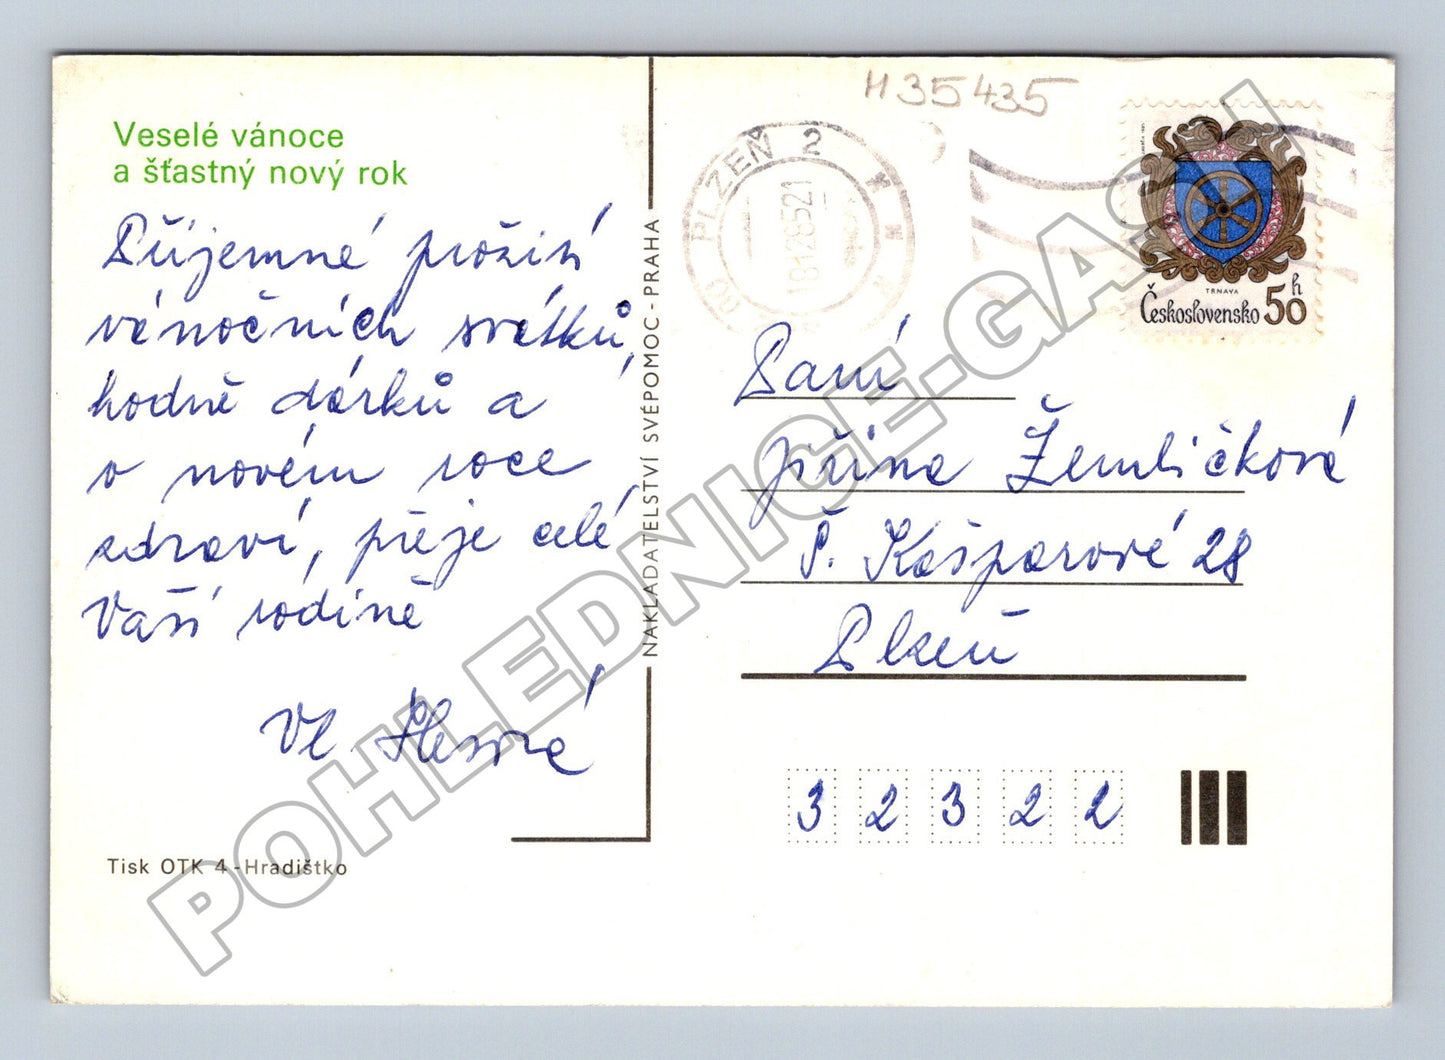 Veselé vánoce
a šťastný nový rok
Příjemné prožití
vánočních svátků,
hodně dárků a
v novém roce
zdraví, přeje celé
Vaší rodině
Vl.
Tisk OTK 4 - Hradištko
NAKLADATELSTVÍ SVÉPOMOC - PRAHA
H35435
PLZEŇ 2
18128521
TRNAVA
Československo 50 h
Paní
Jiřina Žemličková
P. Kašparové 28
Plzeň
3 2 3 2 2
POHLEDNICE-GASH